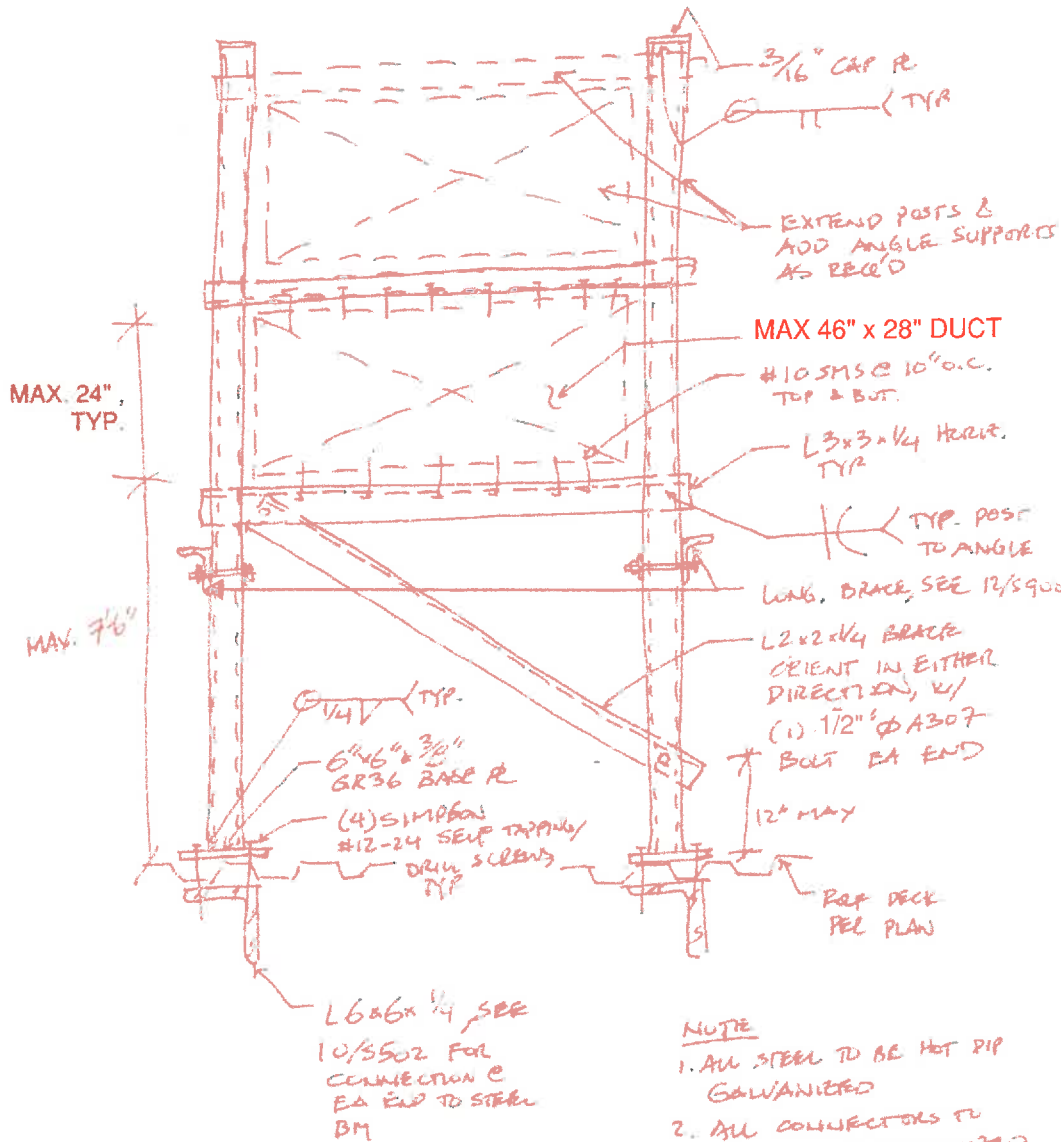 3/16" CAP PL
TYP
EXTEND POSTS &
ADD ANGLE SUPPORTS
AS REQ'D
MAX 46" x 28" DUCT
#10 SMS @ 10" O.C.
TOP & BOT.
L3x3x1/4 HORIZ.
TYP
TYP. POST
TO ANGLE
LONG. BRACE, SEE 12/S900
L2x2x1/4 BRACE
ORIENT IN EITHER
DIRECTION, W/
(1) 1/2" Ø A307
BOLT EA END
12" MAX
ROOF DECK
PER PLAN
MAX. 24",
TYP.
MAX. 7'6"
1/4 TYP.
6"x6"x3/8"
GR36 BASE PL
(4) SIMPSON
#12-24 SELF TAPPING/
DRILL SCREWS
TYP
L6x6x1/4, SEE
10/S502 FOR
CONNECTION @
EA END TO STEEL
BM
NOTE
1. ALL STEEL TO BE HOT DIP
GALVANIZED
2. ALL CONNECTORS TO